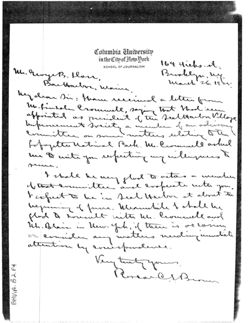 Columbia University
in the City of New York
SCHOOL OF JOURNALISM
Brooklyn, N.Y.
March 26
Mr. George B. Dorr
Bar Harbor, Maine
My dear Sir: I have received a letter from
Mr. Lincoln Cromwell, saying that I had been
appointed as president of the Seal Harbor Village
Improvement Society a member of an advisory
committee, on matters relating to the
Lafayette National Park. Mr. Cromwell asked
me to write you regarding my willingness to
serve.
I shall be very glad to act as a member
of that committee and cooperate with you.
I expect to be in Seal Harbor at about the
beginning of June. Meanwhile I shall be
glad to consult with Mr. Cromwell and
Mr. Blair in New York, if there is occasion
to consider any matters needing immediate
attention by correspondence.
Very truly yours,
Brown